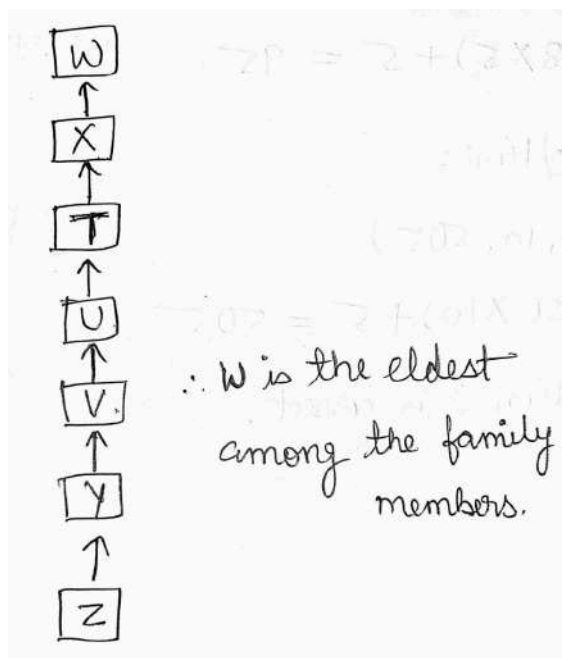 W
X
T
U
V
∴ W is the eldest
among the family
Y
members.
Z